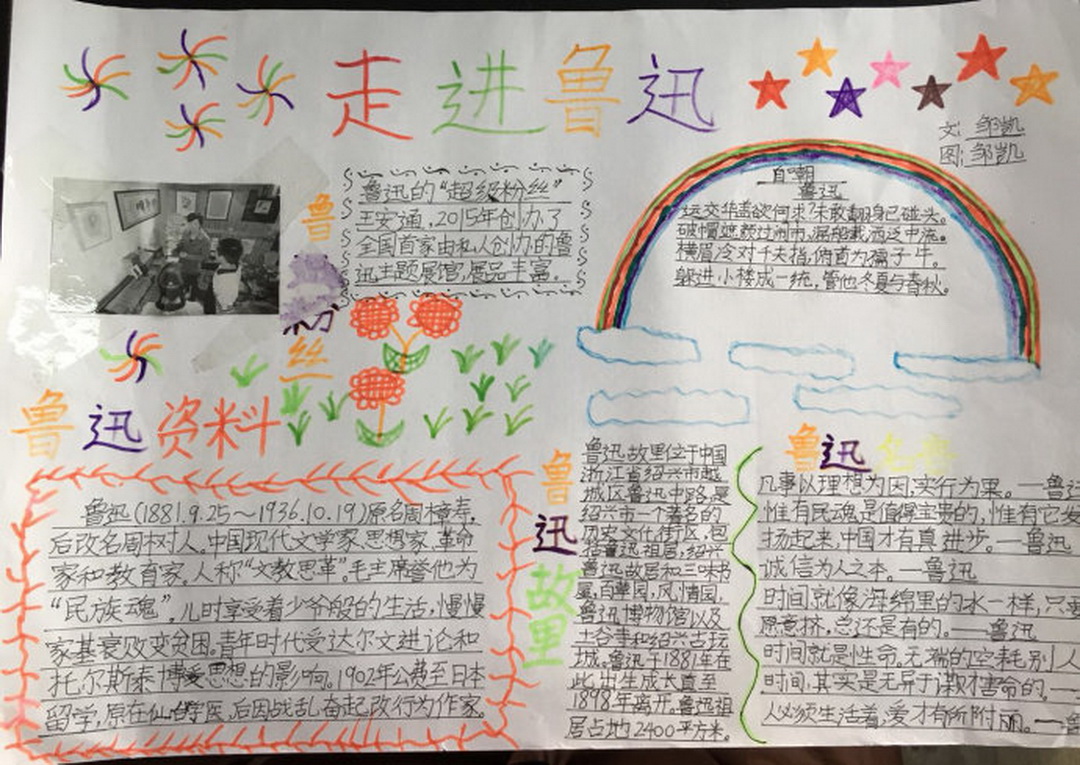 走进鲁迅
文:邹凯
图:邹凯
鲁
粉
丝
鲁迅的“超级粉丝”
王安通,2015年创办了
全国首家由私人创办的鲁
迅主题展馆,展品丰富。
自嘲
鲁迅
运交华盖欲何求?未敢翻身已碰头。
破帽遮颜过闹市,漏船载酒泛中流。
横眉冷对千夫指,俯首为孺子牛。
躲进小楼成一统,管他冬夏与春秋。
鲁迅资料
鲁迅(1881.9.25~1936.10.19)原名周樟寿,
后改名周树人。中国现代文学家、思想家、革命
家和教育家。人称“文教思革”。毛主席誉他为
“民族魂”。儿时享受着少爷般的生活,慢慢
家基衰败变贫困。青年时代受达尔文进论和
托尔斯泰博爱思想的影响。1902年公费至日本
留学,原在仙台学医,后因战乱奋起改行为作家。
鲁
迅
故
里
鲁迅故里位于中国
浙江省绍兴市越
城区鲁迅中路,是
绍兴市一个著名的
历史文化街区,包
括鲁迅祖居,绍兴
鲁迅故居和三味书
屋,百草园,风情园,
鲁迅博物馆以及
土谷寺和绍兴古玩
城。鲁迅于1881年在
此出生成长直至
1898年离开。鲁迅祖
居占地2400平方米。
鲁迅名言
凡事以理想为因,实行为果。—鲁迅
惟有民魂是值得宝贵的,惟有它发
扬起来,中国才有真进步。—鲁迅
诚信为人之本。—鲁迅
时间就像海绵里的水一样,只要
愿意挤,总还是有的。—鲁迅
时间就是性命,无端的空耗别人
时间,其实是无异于谋财害命的。—
人必须生活着,爱才有所附丽。—鲁